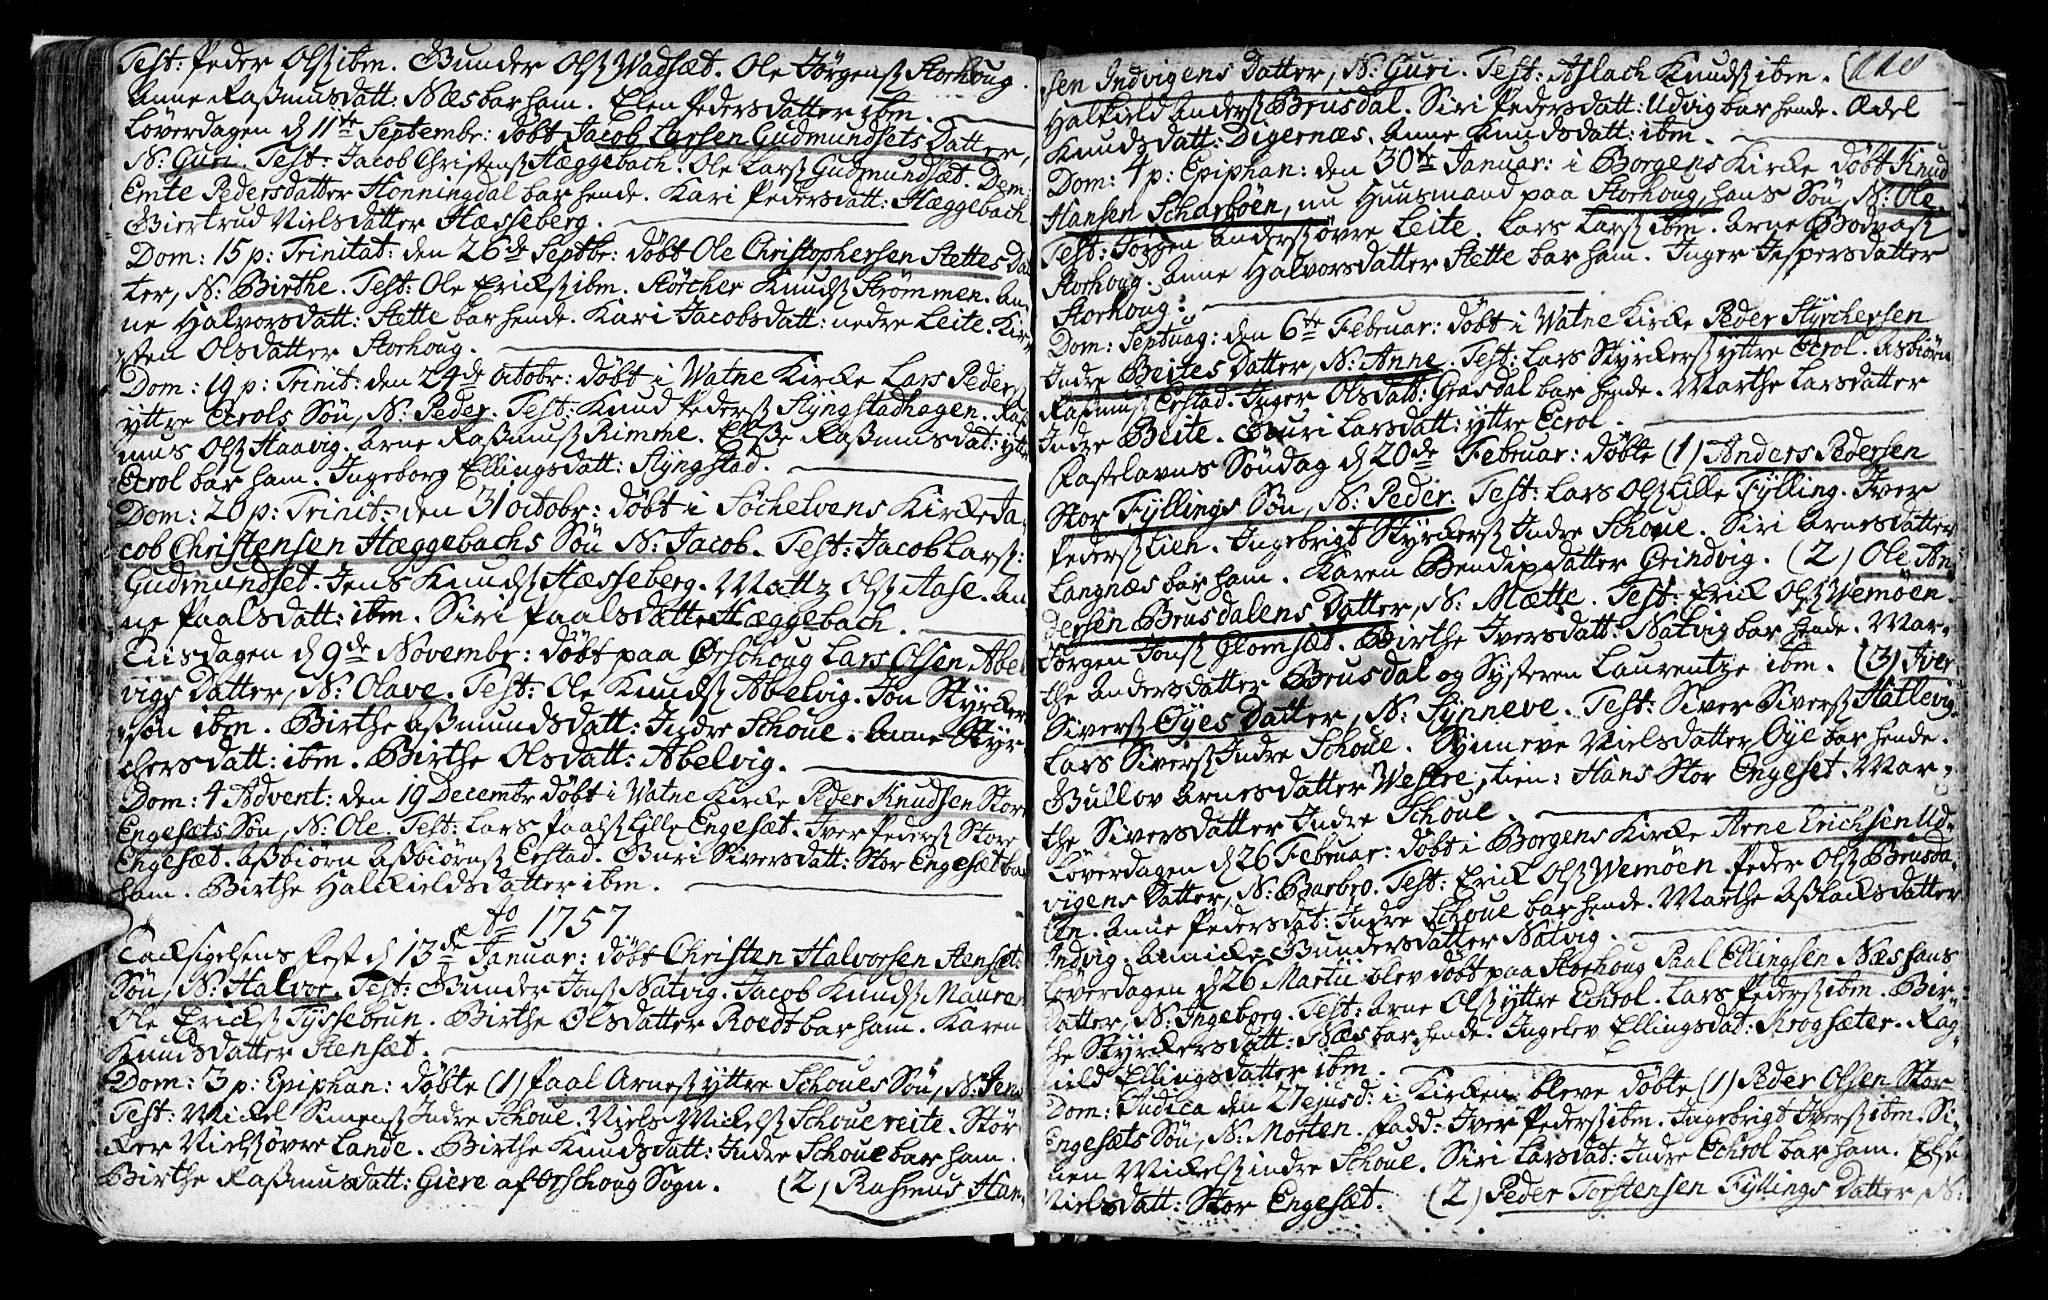 Test: Peder Olsß ibm. Gunder Olsß Wadsæt. Ole Jörgensß Storhoug.
Anne Rasmusdatt: Næs bar ham. Elen Pedersdatter ibm.
Löverdagen d 11te Septembr: döbt Jacob Larsen Gudmundsets Datter,
N: Guri. Test: Jacob Christensß Hæggebach. Ole Larsß Gudmundsæt. Dem:
Emte Pedersdatter Honningdal bar hende. Kari Pedersdatt: Hæggebach
Giertrud Nielsdatter Hæsseberg.
Dom: 15 p: Trinitat: den 26de Septbr: döbt Ole Christophersen Stettes Dat
ter, N: Birthe. Test: Ole Ericksß ibm. Störcher Knudsß Strömmen. An
ne Halvorsdatt: Stette bar hende. Kari Jacobsdatt: nedre Leite. Kir
sten Olsdatter Storhoug.
Dom: 19 p: Trinit: den 24de octobr: döbt i Watne Kircke Lars Peders
yttre Ecrols Sön, N: Peder. Test: Knud Pedersß Slyngstadhagen. Ras
mus Olsß Haavig. Arne Rasmusß Rimme. Elsse Rasmusdat: yttr
Ecrol bar ham. Ingeborg Ellingsdatt: Slyngstad.
Dom: 20 p: Trinit: den 31 octobr: döbt i Söchelvens Kircke Ja-
cob Christensen Hæggebachs Sön N: Jacob. Test: Jacob Larsß:
Gudmundset. Jens Knudsß Hæsseberg. Mattz Olsß Aase. An
ne Paalsdatt: ibm. Siri Paalsdatter Hæggebach.
Tiisdagen d 9de Novembr: döbt paa Örschoug Lars Olsen Abel
vigs Datter, N: Olave. Test: Ole Knudsß Abelvig. Jon Styrcker
sön ibm. Birthe Asmundsdatt: Indre Schoue. Anne Styr
chersdatt: ibm. Birthe Olsdatt: Abelvig.
Dom: 4 Advent: den 19 Decembr döbt i Watne Kircke Peder Knudsen Stor
Engesæts Sön, N: Ole. Test: Lars Paalsß Lille Engesæt. Iver Pedersß Store
Engesæt. Asbiörn Asbiörnsß Erstad. Guri Siversdatt: Stor Engesæt bar
ham. Birthe Halckieldsdatter ibm.
Ao 1757
Tacksigelsens Fest d 13de Januar: döbt Christen Halvorsen Stensets
Sön, N: Halvor. Test: Gunder Jonsß Natvig. Jacob Knudsß Mauren
Ole Ericksß Tyssebrun. Birthe Olsdatter Roedt bar ham. Karen
Knudsdatter Stensæt.
Dom: 3 p: Epiphan: döbte (1) Paal Arnesß yttre Schoues Sön, N: Jens
Test: Mickel Simensß Indre Schoue. Niels Mickelsß Schouereite. Stör
ker Nielsß övre Lande. Birthe Knudsdatt: Indre Schoue bar ham.
Birthe Rasmusdatt: Giere af Örschoug Sogn. (2) Rasmus Han-
sen Indvigens Datter, N: Guri. Test: Aslach Knudsß ibm.
Halkield Andersß Brusdal. Siri Pedersdatt: Udvig bar hende. Edel
Knudsdatt: Digernæs. Anne Knudsdatt: ibm.
Dom: 4 p: Epiphan: den 30te Januar: i Borgens Kircke döbt Knud
Hansen Scharböen, nu Huusmand paa Storhoug, hans Sön, N: Ole.
Test: Jörgen Andersß övre Leite. Lars Larsß ibm. Arne Bodvasß
Storhoug. Anne Halvorsdatter Stette bar ham. Inger Jespersdatter
Storhoug.
Dom: Septuag: den 6te Februar: döbt i Watne Kircke Peder Styrchersen
Indre Beites Datter, N: Anne. Test: Lars Styrckersß yttre Ecrol. Asbiörn
Rasmusß Erstad. Inger Olsdatt: Grasdal bar hende. Marthe Larsdatter
Indre Beite. Guri Larsdatt: yttre Ecrol.
Fastelavns Söndag d 20de Februar: döbte (1) Anders Pedersen
Stor Fyllings Sön, N: Peder. Test: Lars Olsß Lille Fylling. Iver
Pedersß Lien. Ingebrigt Styrckersß Indre Schoue. Siri Arnesdatter
Langnæs bar ham. Karen Bendixdatter Grindvig. (2) Ole An-
dersen Brusdalens Datter, N: Mætte. Test: Erick Olsß Wemöen.
Jörgen Jonsß Glomsæt. Birthe Iversdatt: Natvig bar hende. Mar-
the Andersdatter Brusdal og Systeren Laurentze ibm. (3) Iver
Siversß Öyes Datter, N: Synneve. Test: Siver Siversß Hatlevig.
Lars Siversß Indre Schoue. Synneve Nielsdatter Öye bar hende.
Gullov Arnesdatter Westre, tien: Hans Stor Engeset. Mar-
the Siversdatter Indre Schoue.
Löverdagen d 26 Februar: döbt i Borgens Kircke Arne Erichsen Ud-
vigens Datter, N: Barbro. Test: Erick Olsß Wemöen. Peder Olsß Brusda-
len. Anne Pedersdat: Indre Schoue bar hende. Marthe Aslacksdatter
Indvig. Annicke Gundersdatter Natvig.
Löverdagen d 26 Martii blev döbt paa Storhoug Paal Ellingsen Næs hans
Datter, N: Ingeborg. Test: Arne Olsß yttre Echrol. Lars Pedersß ibm. Bir-
the Styrckersdatt: Næs bar hende. Ingelev Ellingsdat: Krogsæter. Rag-
nild Ellingsdatter ibm.
Dom: Judica den 27 ejusd: i Kircken bleve döbte (1) Peder Olsen Stor
Engesæts Sön, N: Morten. Fadd: Iver Pedersß ibm. Ingebrigt Iversß ibm. Si-
men Mickelsß indre Schoue. Siri Larsdat: Indre Echrol bar ham. Else
Nielsdatt: Stor Engesæt. (2) Peder Torstensen Fyllings Datter, N: